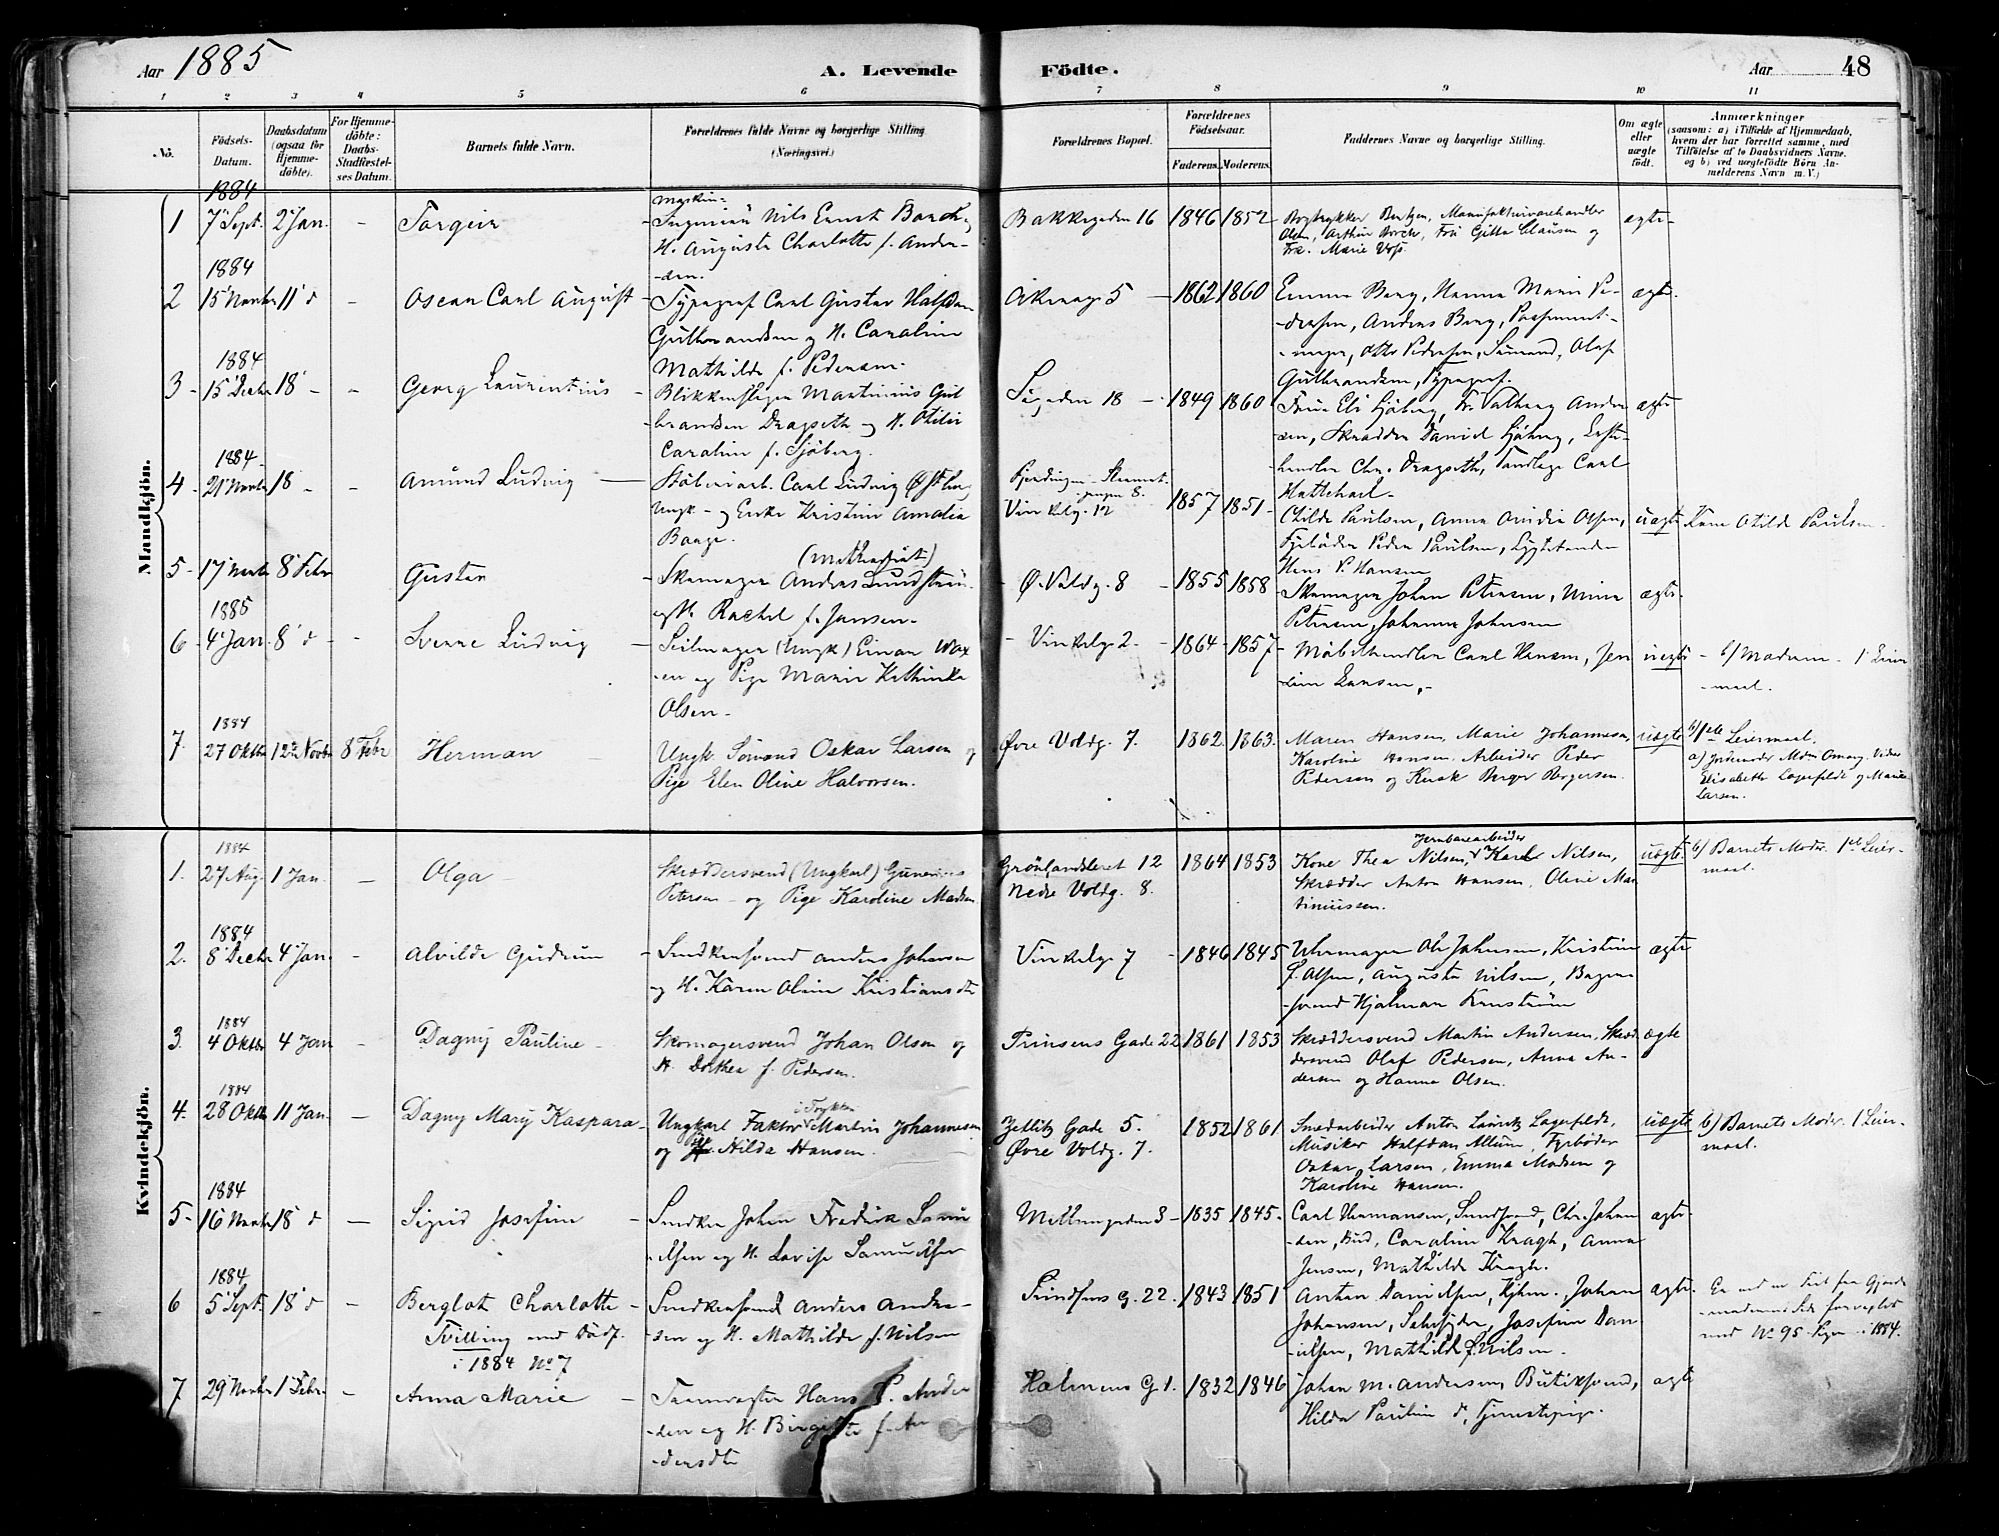 Aar 1885
A. Levende Födte.
Aar 48
1 2 3 4 5 6 7 8 9 10 11
No.
Födsels-Datum.
Daabsdatum (ogsaa for Hjemme-döbte).
For Hjemme-döbte: Daabs-Stadfæstel-ses Datum.
Barnets fulde Navn.
Forældrenes fulde Navne og borgerlige Stilling (Næringsvei.)
Forældrenes Bopæl.
Forældrenes Födselsaar.
Faderens. Moderens.
Faddernes Navne og borgerlige Stilling.
Om ægte eller uægte födt.
Anmærkninger
(saasom: a) i Tilfælde af Hjemmedaab,
hvem der har forrettet samme, med
Tilföielse af to Daabsvidners Navne,
og b) ved uægtefödte Börn An-
melderens Navn m. V.)
Mandkjön.
1884
1 7 Sept. 2 Jan. - Torgeir
Ingeniör Nils Ernst Barch
H. Augusta Charlotte f.
Bakkegaden 16 1846 1852
Bogtrykker Bentzen, Manufakturvarehandler
Olsen, Arthur Borch, Frü Gitta Clausen og
Frk. Marie
ægte
1884
2 15 Novbr 11 d - Oscar Carl August
Typograf Carl Gustav Halfdan
Gulbrandsen og H. Caroline
Mathilde f. Pedersen.
Akersg 5 1862 1860
Emma Berg, Hanna Marie Pe-
dersen, Anders Berg,
Otto Pedersen, Sömand, Olaf
Gulbrandsen, Typograf.
ægte.
1884
3 - 15 Decbr 18 - - Georg Laurentius
Blikkenslager Martinius Gul
brandsen Dragseth og H. Otilie
Caroline f. Sjöberg.
1849 1860
Frue Eli Sjöberg, Fr. Valborg Ander
sen, Skrædder Daniel Sjöberg,
handler Chr. Dragseth, Tandlæge Carl
ægte
1884
4 - 21 Novbr 18 - - Amund Ludvig
Carl Ludvig
Ungk - og Enke Kristine Amalia
Vinkelg. 12 1857 1851
Otilde Paulsen, Anna Olsen,
Fyrböder Peder Paulsen, Lygtetænder
Hans P. Hansen
uægte Kone Otilde Paulsen
5 - 17 Novbr 8 Febr Gustav
Skomager Anders Lundström
og H. Rachel f. Jansen.
Ø. Voldg. 8 1855 1858
Skomager Johan Petersen, Mina
Petersen, Johanna Johnsen
ægte
1885
6 4 Jan. 8 d - Sverre Ludvig
Seilmager (Ungk) Einar
og Pige Marie Kathinka
Olsen
Vinkelg 2 1864 1857
Möbelhandler Carl Hansen, Jen
sine Larsen
uægte b/ Moderen 1 Leier
maal.
1884
7. 27 Oktbr 12te Novbr 8 Febr Herman
Ungk. Sömand Oskar Larsen og
Pige Elen Oline Halvorsen.
Øvre Voldg. 7. 1862. 1863.
Maren Hansen, Marie Johannesen,
Karoline Hansen, Arbeider Peder
Pedersen og Kusk Berger Bergersen.
uægte b/ 1ste Leiermaal.
a) Jordemoder Mdm Omang. Vidner
Elisabeth Lagerfeldt og Marie
Larsen.
Kvindekjön.
1884
1. 27 Aug. 1 Jan. - Olga
Skræddersvend (Ungkarl) Gunerius
Petersen og Pige Karoline Madsen
Grönlandsleret 12
Nedre Voldg. 8. 1864 1853
Jernbanearbeider
Kone Thea Nilsen, Karl Nilsen,
Skrædder Anton Hansen, Oline Mar
tiniussen.
uægte. b) Barnets Moder. 1ste Leier-
maal.
1884
2. 8 Decbr 4 Jan. - Alvilde Gudrun
Snedkersvend Anders Johansen
og H. Karen Oline Kristiansdtr
Vinkelg. 7 1846 1845
Uhrmager Ole Johnsen, Kristine
f. Olsen, Augusta Nilsen, Bager-
svend Hjalmar
ægte
1884
3. 4 Oktbr 4 Jan - Dagny Pauline
Skomagersvend Johan Olsen og
H. Dorthea f. Pedersen.
Prinsens Gade 22 1861 1853
Skræddersvend Martin Andersen, Skræd
dersvend Olaf Pedersen, Anna An-
dersen og Hanna Olsen.
ægte
1884
4. 28 Oktbr 11 Jan. - Dagny Mary Kaspara
Ungkarl Faktor Martin Johannesen
og Hilda Hansen.
Zetlitz Gade 5.
Øvre Voldg. 7. 1852 1861
Anton Lauritz Lagerfeldt,
Musiker Halfdan Allum, Fyrböder
Oskar Larsen, Emma Madsen og
Karoline Hansen.
uægte b) Barnets Moder. 1 Leier-
maal.
1884
5 - 16 Novbr 18 d - Sigrid Josefine
Snedker Johan Fredrik Samu
elsen og H. Lovise Samuelsen
Möllergaden 3 1835 1845
Carl Hermansen, Chr. Johan
sen, Bud, Caroline Kragh, Anna
Jensen, Mathilde Kragh.
ægte
1884
6 5 Sept. 18 d - Bergliot Charlotte
Tvilling med Dödf.
i 1884 No 7
Snedkersvend Anders Ander-
sen og H. Mathilde f. Nilsen
Prindsens G. 22. 1843 1851
Anton Danielsen, Kjhm., Johan
Johansen, Josefine Dan
ielsen, Mathilde f. Nilsen.
ægte.
med No 95 i 1884.
7 29 Novbr 1 Febr. - Anna Marie
Hans P. Ander
sen og H. Birgitte f. An
dersdtr
Holmens G 1. 1832 1846
Johan M. Andersen, Butiksvend,
Hilda Pauline d, Tjenestepige.
ægte